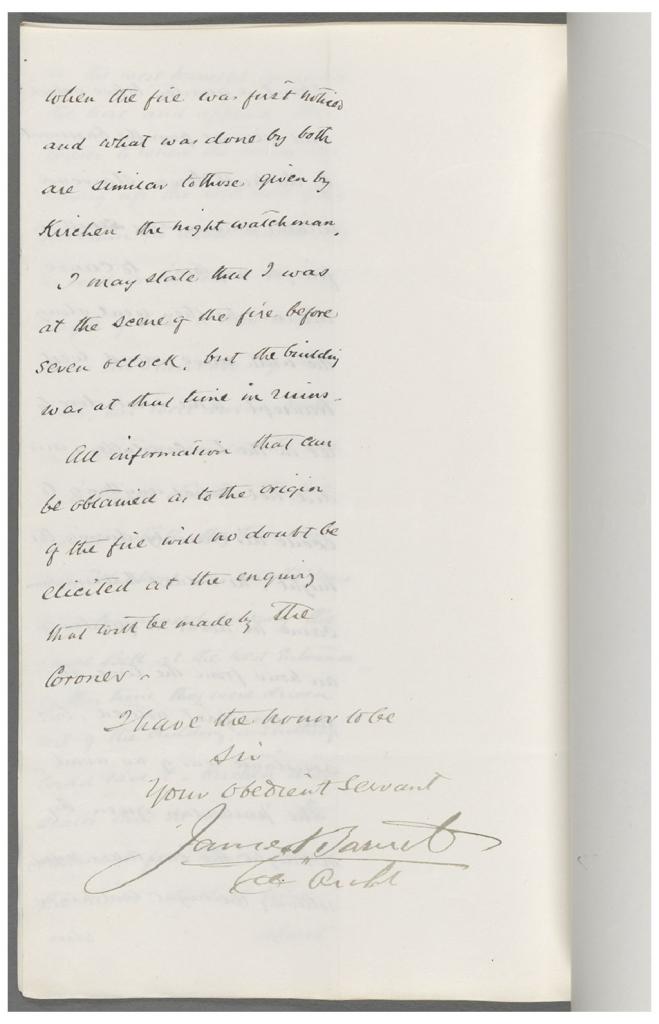 when the fire was first noticed
and what was done by both
are similar to those given by
Kirchen the night watchman,
I may state that I was
at the scene of the fire before
seven oclock, but the building
was at that time in ruins -
All information that can
be obtained as to the origin
of the fire will no doubt be
elicited at the enquiry
that will be made by the
Coroner -
I have the honor to be
Sir
Your obedient servant
James Barnet
Col Archt